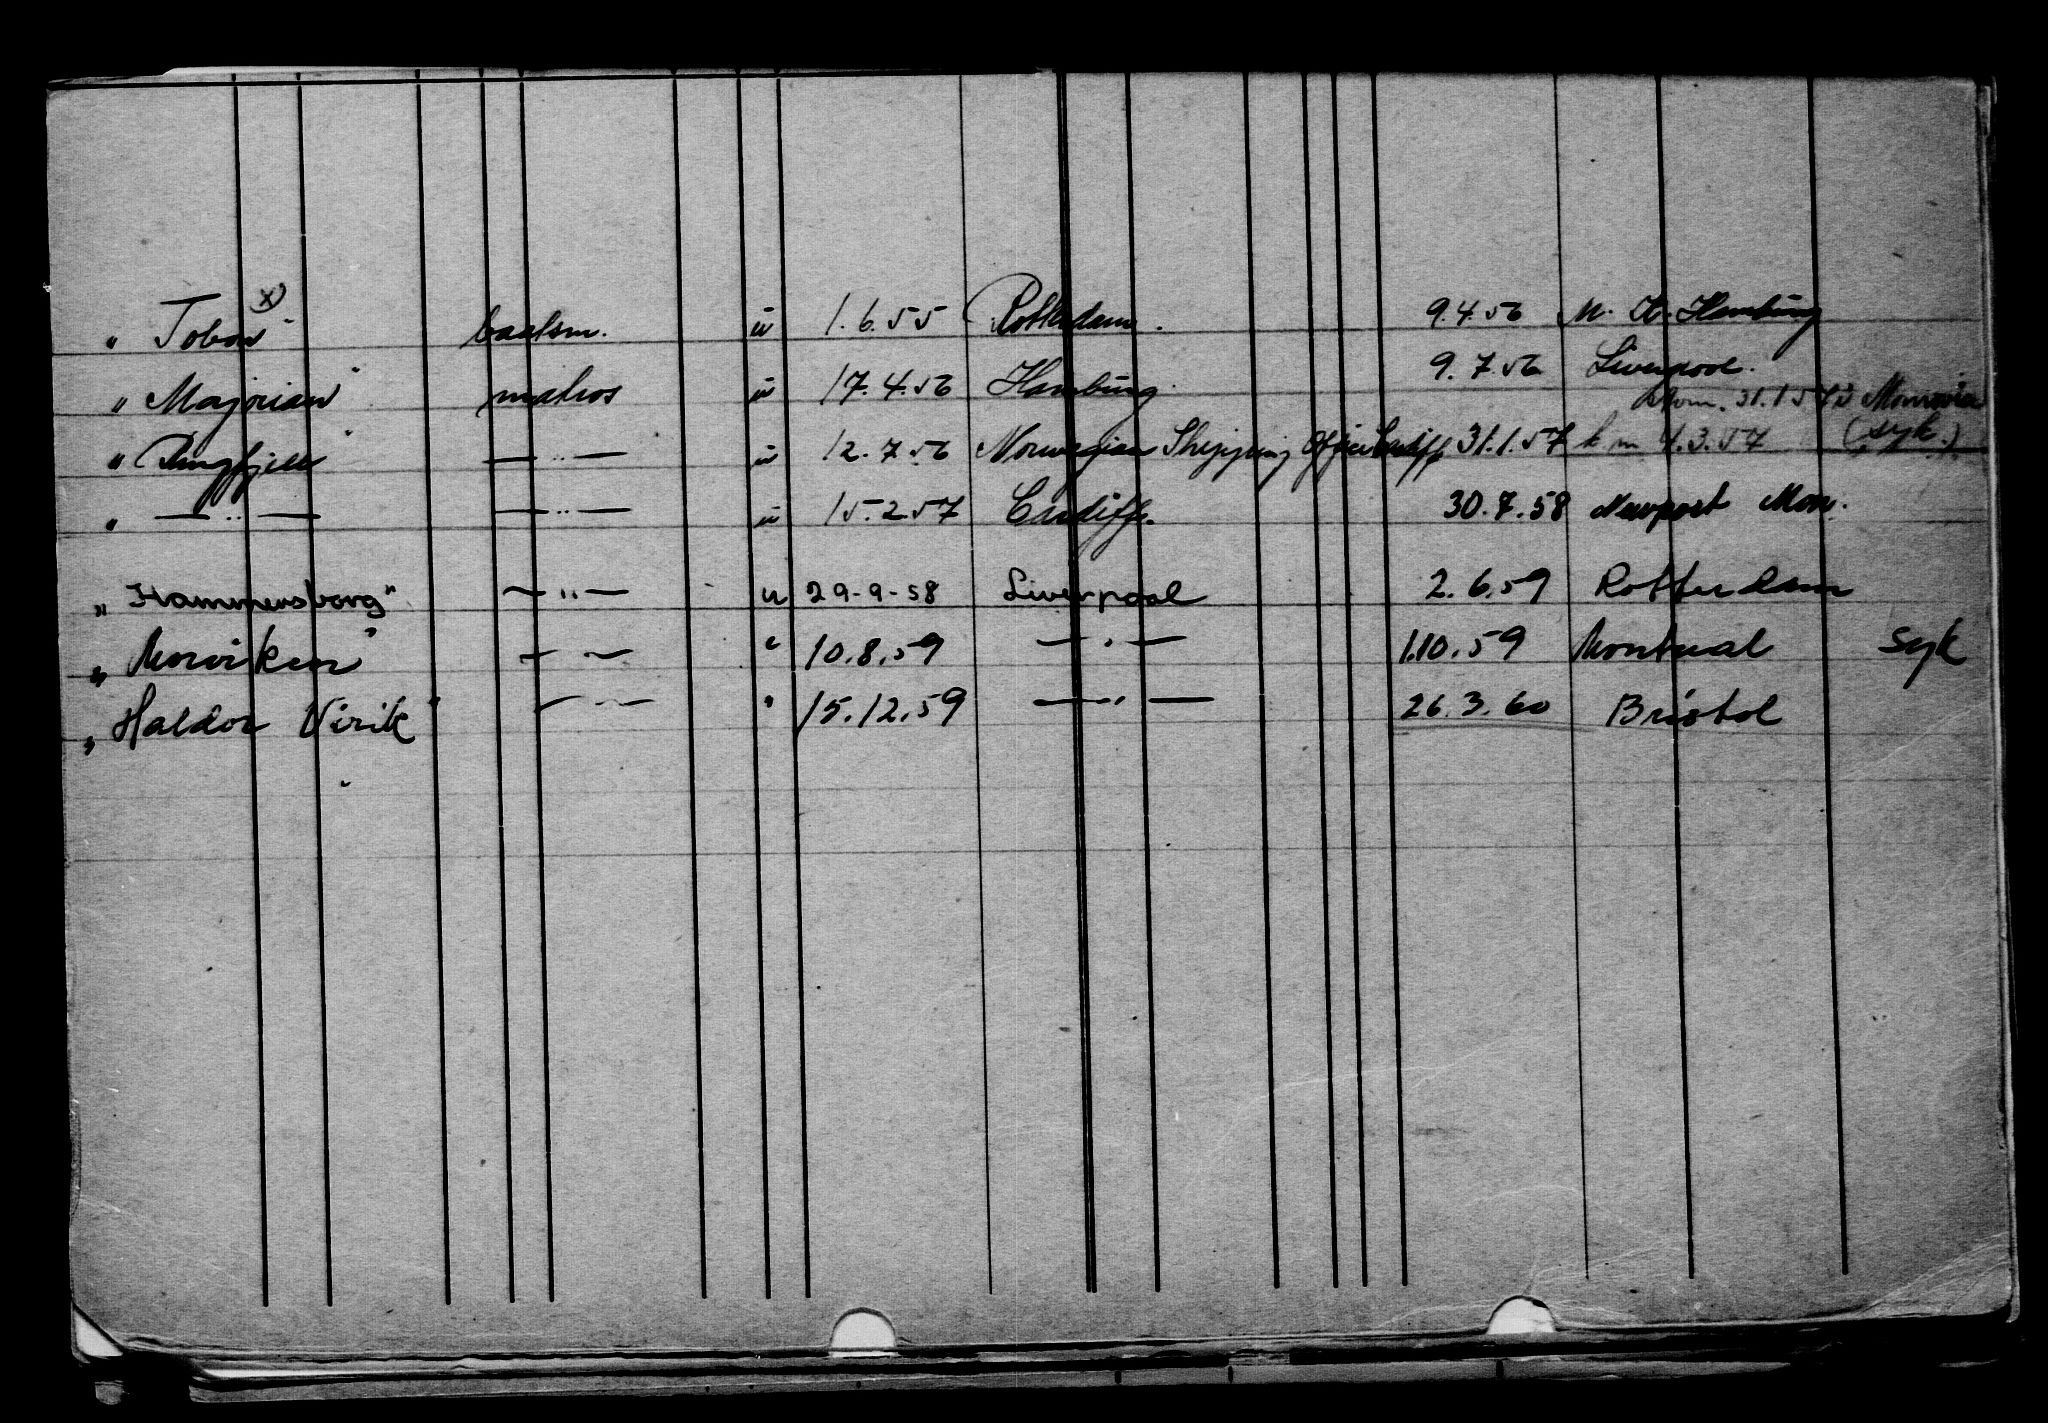 x)
" Tobon" baatsm. u 1.6.55 Rotterdam. 9.4.56 Hamburg
" Marjorian" matros u 17.4.56 Hamburg. 9.7.56 Liverpool.
31.1.57 i Monrovia
" Ringfjell" — " — u 12.7.56 Norwegian Shipping Office Cardiff 31.1.57 4.3.57 (syk.)
" — " — — " — u 15.2.57 Cardiff. 30.7.58 Newport Mon.
" Hammersborg" — " — u 29-9-58 Liverpool 2.6.59 Rotterdam
„ Morviken" — " — " 10.8.59 — " — 1.10.59 Montreal syk
„ Haldor Virik" — " — " 15.12.59 — " — 26.3.60 Bristol